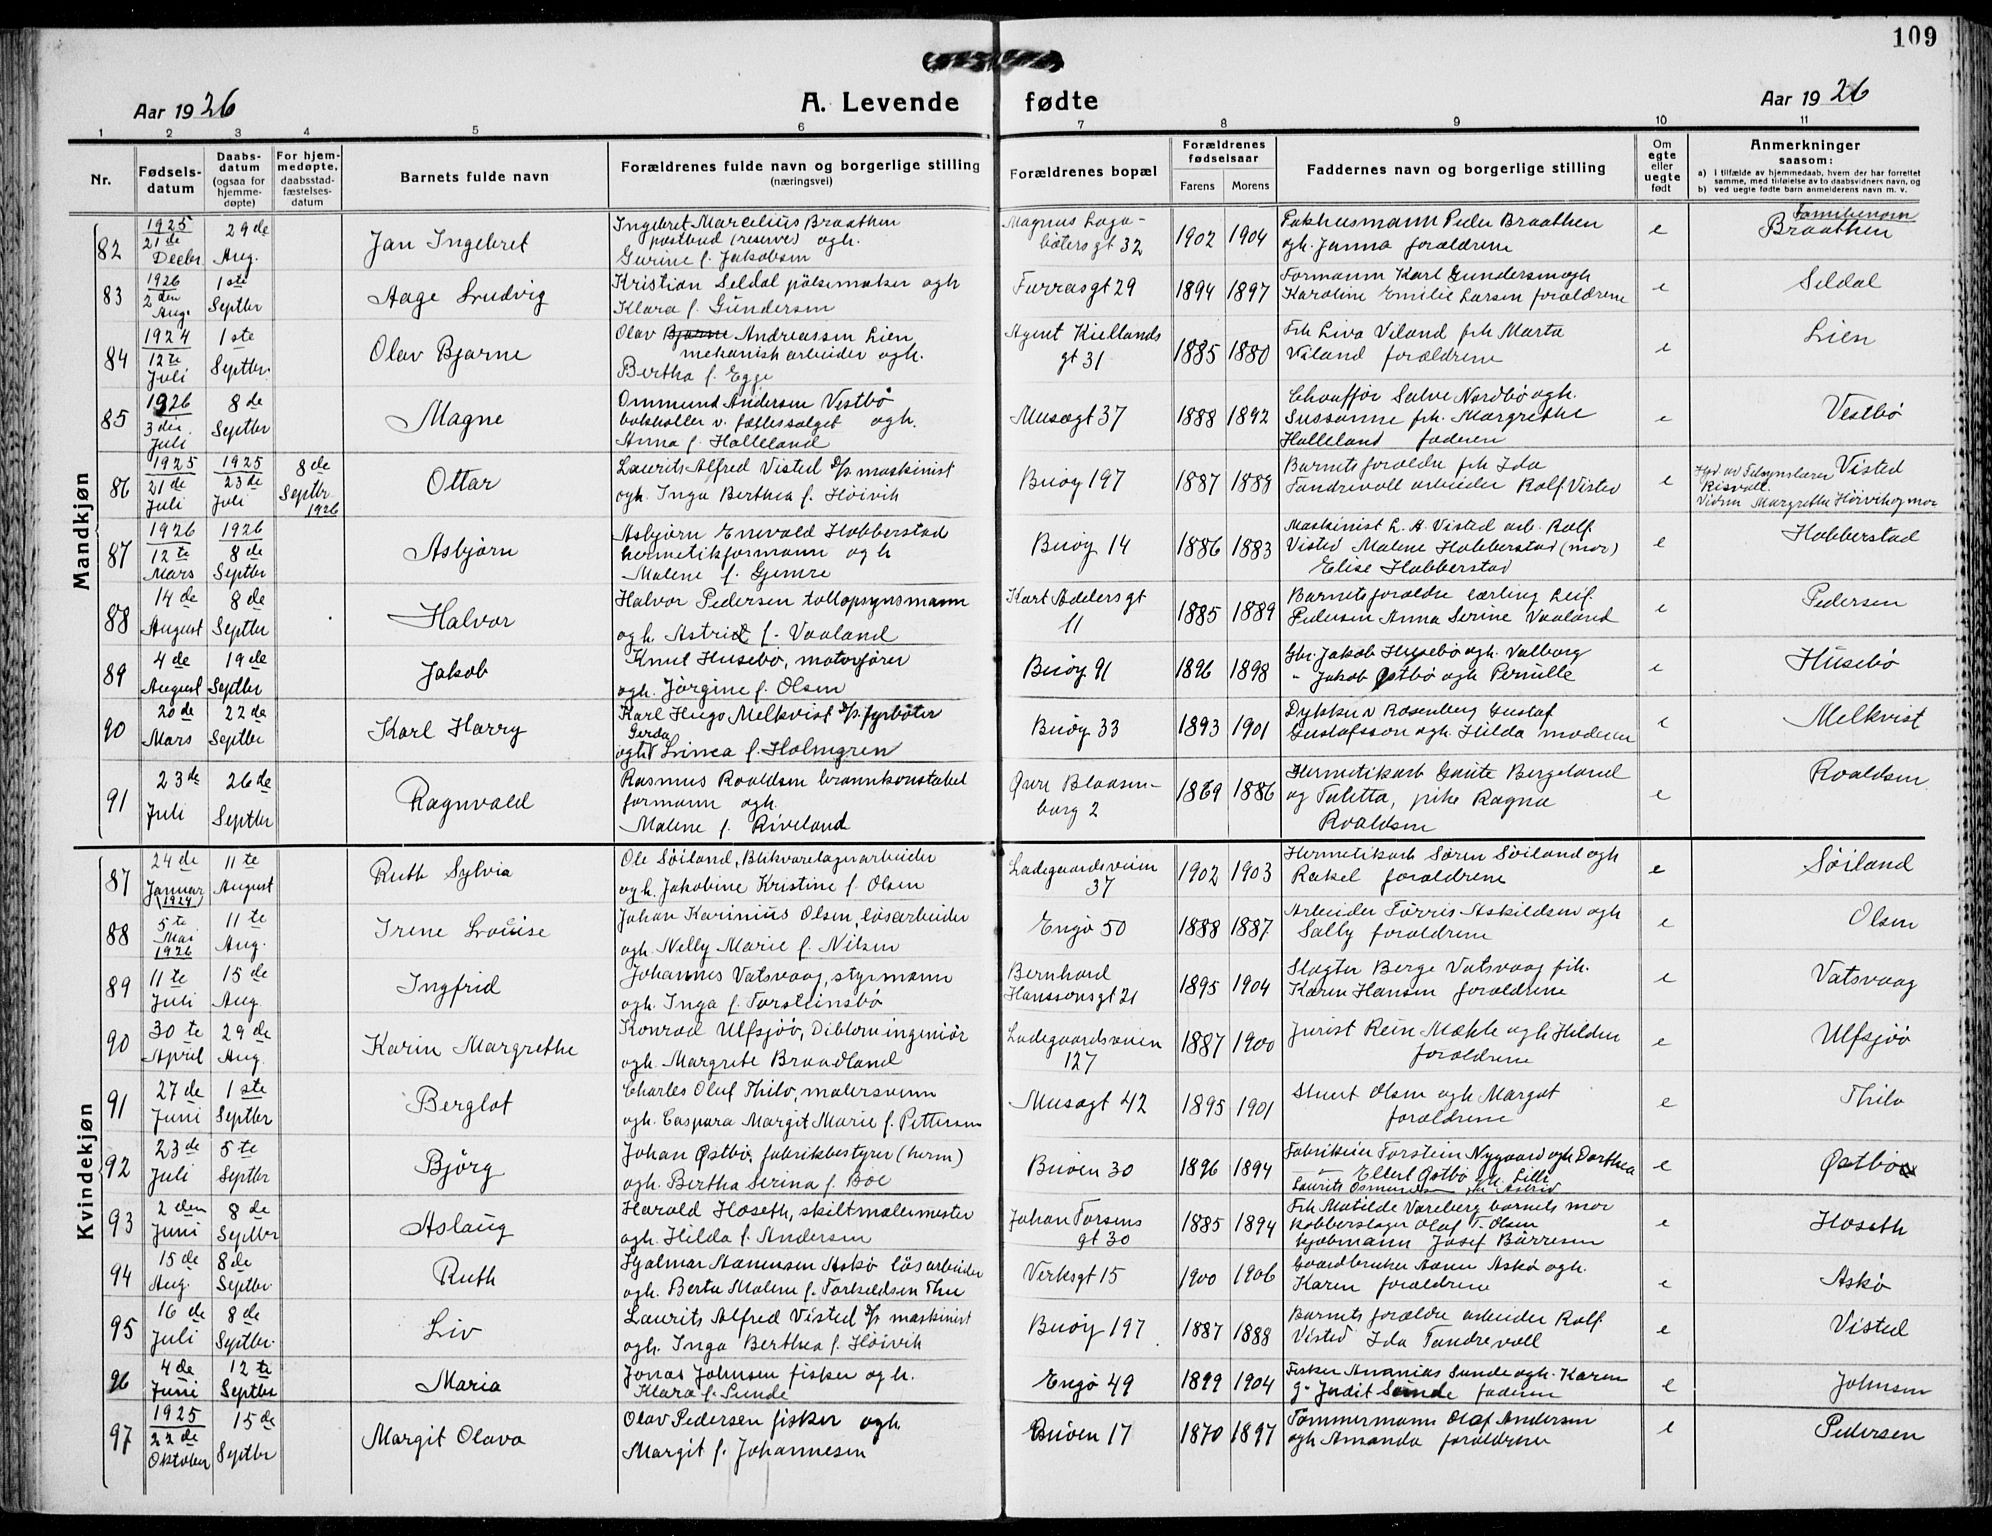 109
Aar 1926
A. Levende fødte
Aar 1926
1 2 3 4 5 6 7 8 9 10 11
Nr.
Fødsels-
datum
Daabs-
datum
(ogsaa for
hjemme-
døpte)
For hjem-
medøpte,
daabsstad-
fæstelses-
datum
Barnets fulde navn
Forældrenes fulde navn og borgerlige stilling
(næringsvei)
Forældrenes bopæl
Forældrenes
fødselsaar
Farens Morens
Faddernes navn og borgerlige stilling
Om
egte
eller
uegte
født
Anmerkninger
saasom:
a) I tilfælde av hjemmedaab, hvem der har forrettet
samme, med tilføielse av to daabsvidners navn, og
b) ved uegte fødte barn anmelderens navn m. v.
Mandkjøn
82
1925
21de
Decbr.
29de
Aug.
Jan Ingebret
Ingebret Marcelius Braathen
postbud (reserve) ogh.
Gurine f. Jakobsen
Magnus Laga-
bøtersgt 32
1902 1904
Pakhusmann Peder Braathen
ogh. Janna forældrene
e
Familienavn
Braathen
83
1926
2den
Aug.
1ste
Septbr
Aage Ludvig
Kristian Seldal pölsemaker ogh
Klara f. Gundersen
Furrasgt 29
1894 1897
Formann Karl Gundersen ogh
Karoline Emilie Larsen forældrene
e
Seldal
84
1924
12te
Juli
1ste
Septbr.
Olav Bjarne
Olav Bjarne Andreassen Lien
mekanisk arbeider ogh.
Bertha f. Egge
Agent Kiellands
gt 31
1885 1880
Frk Liva Viland frk Marta
Viland forældrene
e
Lien
85
1926
3den.
Juli
8de
Septbr
Magne
Ommund Andersen Vestbø
bokholler v. fællessalget ogh.
Anna f. Halleland
Musægt 37
1888 1892
Chauffør Salve Nordbø ogh.
Sussanne frk. Margrethe
Halleland faderen
e
Vestbø
86
1925
21de
Juli
1925
23de
Juli
8de
Septbr
1926
Ottar
Laurits Alfred Visted D/s maskinist
ogh. Inga Berthea f. Höivik
Buöy 197
1887 1888
Barnets forældre frk Ida
Tandrevoll arbeider Rolf Visted
e
Visted
Risvoll
Vidne Margrethe Höivik og mor
87
1926
12te
Mars
1926
8de
Septbr
Asbjörn
Asbjörn Enevald Hobberstad
hermetikformann og h
Malene f. Gjemre
Buöy 14
1886 1883
Maskinist L. A. Visted arb. Rolf
Visted Malene Hobberstad (mor)
Elise Hobberstad
e
Hobberstad
88
14de
August
8de
Septbr
Halvor
Halvor Pedersen tollopsynsmann
ogh. Astrid f. Vaaland
Kort Adelers gt
11
1885 1889
Barnets forældre lærling Leif
Pedersen Anna Serine Vaaland
e
Pedersen
89
4de
August
19de
Septbr
Jakob
Knut Husebö, motorförer
ogh. Jörgine f. Olsen
Buöy 91
1896 1898
Gbr. Jakob Husebö ogh. Valborg
" Jakob Østbö ogh Pernille
e
Husebö
90
20de
Mars
22de
Septbr
Karl Harry
Karl Hugo Melkvist D/s. fyrböter
Gerda
ogh Linea f. Holmgren
Buöy 33
1893 1901
Dykker Rosenberg Gustaf
Gustafsson ogh. Hilda moderen
e
Melkvist
91
23de
Juli
26de
Septbr
Ragnvald
Rasmus Roaldsen brannkonstabel
formann ogh.
Malene f. Riveland
Øvre Blaasen-
borg 2
1869 1886
Hermetikarb Gaute Bergeland
og Taletta, pike Ragna
Roaldsen
e
Roaldsen
Kvindekjøn
87
24de
Januar
(1924)
11te
August
Ruth Sylvia
Ole Söiland, Blikvarelagerarbeider
ogh. Jakobine Kristine f. Olsen
Ladegaardsveien
37
1902 1903
Hermetikarb Sören Söiland ogh
Rakel forældrene
e
Söiland
88
5te
Mai
1926
11te
Aug.
Irene Louise
Johan Karinius Olsen, lösarbeider
ogh. Nelly Marie f. Nilsen
Engö 50
1888 1887
Arbeider Törris Askildsen ogh
Sally forældrene
e
Olsen
89
11te
Juli
15de
Aug.
Ingfrid
Johannes Vatsvaag, styrmann
ogh. Inga f. Torsteinsbö
Bernhard
Hanssonsgt 21
1895 1904
Slagter Berge Vatsvaag frk.
Karen Hansen forældrene
e
Vatsvaag
90
30te
April
29de
Aug.
Karin Margrethe
Konrad Ulfsjöö, Diblomingeniör
ogh. Margrete Braadland
Ladegaardsveien
127
1887 1900
Jurist Rein Mække ogh Hilden
forældrene
e
Ulfsjöö
91
27de
Juni
1ste
Septbr
Berglot
Charles Oluf Thilo, malersvenn
ogh. Caspara Margit Marie f. Pettersen
Musægt 42
1895 1901
Stuert Olsen ogh Margot
forældrene
e
Thilo
92
23de
Juli
5te
Septbr
Björg
Johan Østbö, fabrikbestyrer (herm)
ogh. Bertha Serina f. Boe
Buöen 30
1896 1894
Fabrikeier Torstein Nygaard ogh Dorthea
Ellert Østbö ogh. Lilli
Laurits Osmundsen frk Astrid
e
Østbö
93
2den
Juni
8de
Septbr
Aslaug
Harald Hoseth, skiltmalermester
ogh. Hilda f. Andersen
Johan Torsens
gt 30
1885 1894
Frk Matilde Vareberg barnets mor
kobberslager Olaf T. Olsen
kjöbmann Josef Börresen
e
Hoseth
94
15de
Aug.
8de
Septbr
Ruth
Hjalmar Aanensen Askö lösarbeider
ogh. Berta Malene f. Torkeldsen Thu
Verksgt 15
1900 1906
Gaardbruker Aanen Askö ogh.
Karen forældrene
e
Askö
95
16de
Juli
8de
Septbr.
Liv
Laurits Alfred Visted D/s maskinist
ogh. Inga Berthea f. Höivik
Buöy 197
1887 1888
Barnets forældre arbeider Rolf
Visted Ida Tandrevoll
e
Visted
96
4de
Juni
12te
Septbr
Maria
Jonas Johnsen fisker ogh.
Klara f. Sunde
Engö 49
1899 1904
Fisker Ananias Sunde ogh. Karen
g. Judit Sunde faderen
e
Johnsen
97
1925
22de
Oktober
15de
Septbr
Margit Olava
Olav Pedersen fisker ogh
Margit f. Johannesen
Buöen 17
1870 1897
Tömmermann Olaf Andersen
ogh Amanda forældrene
e
Pedersen